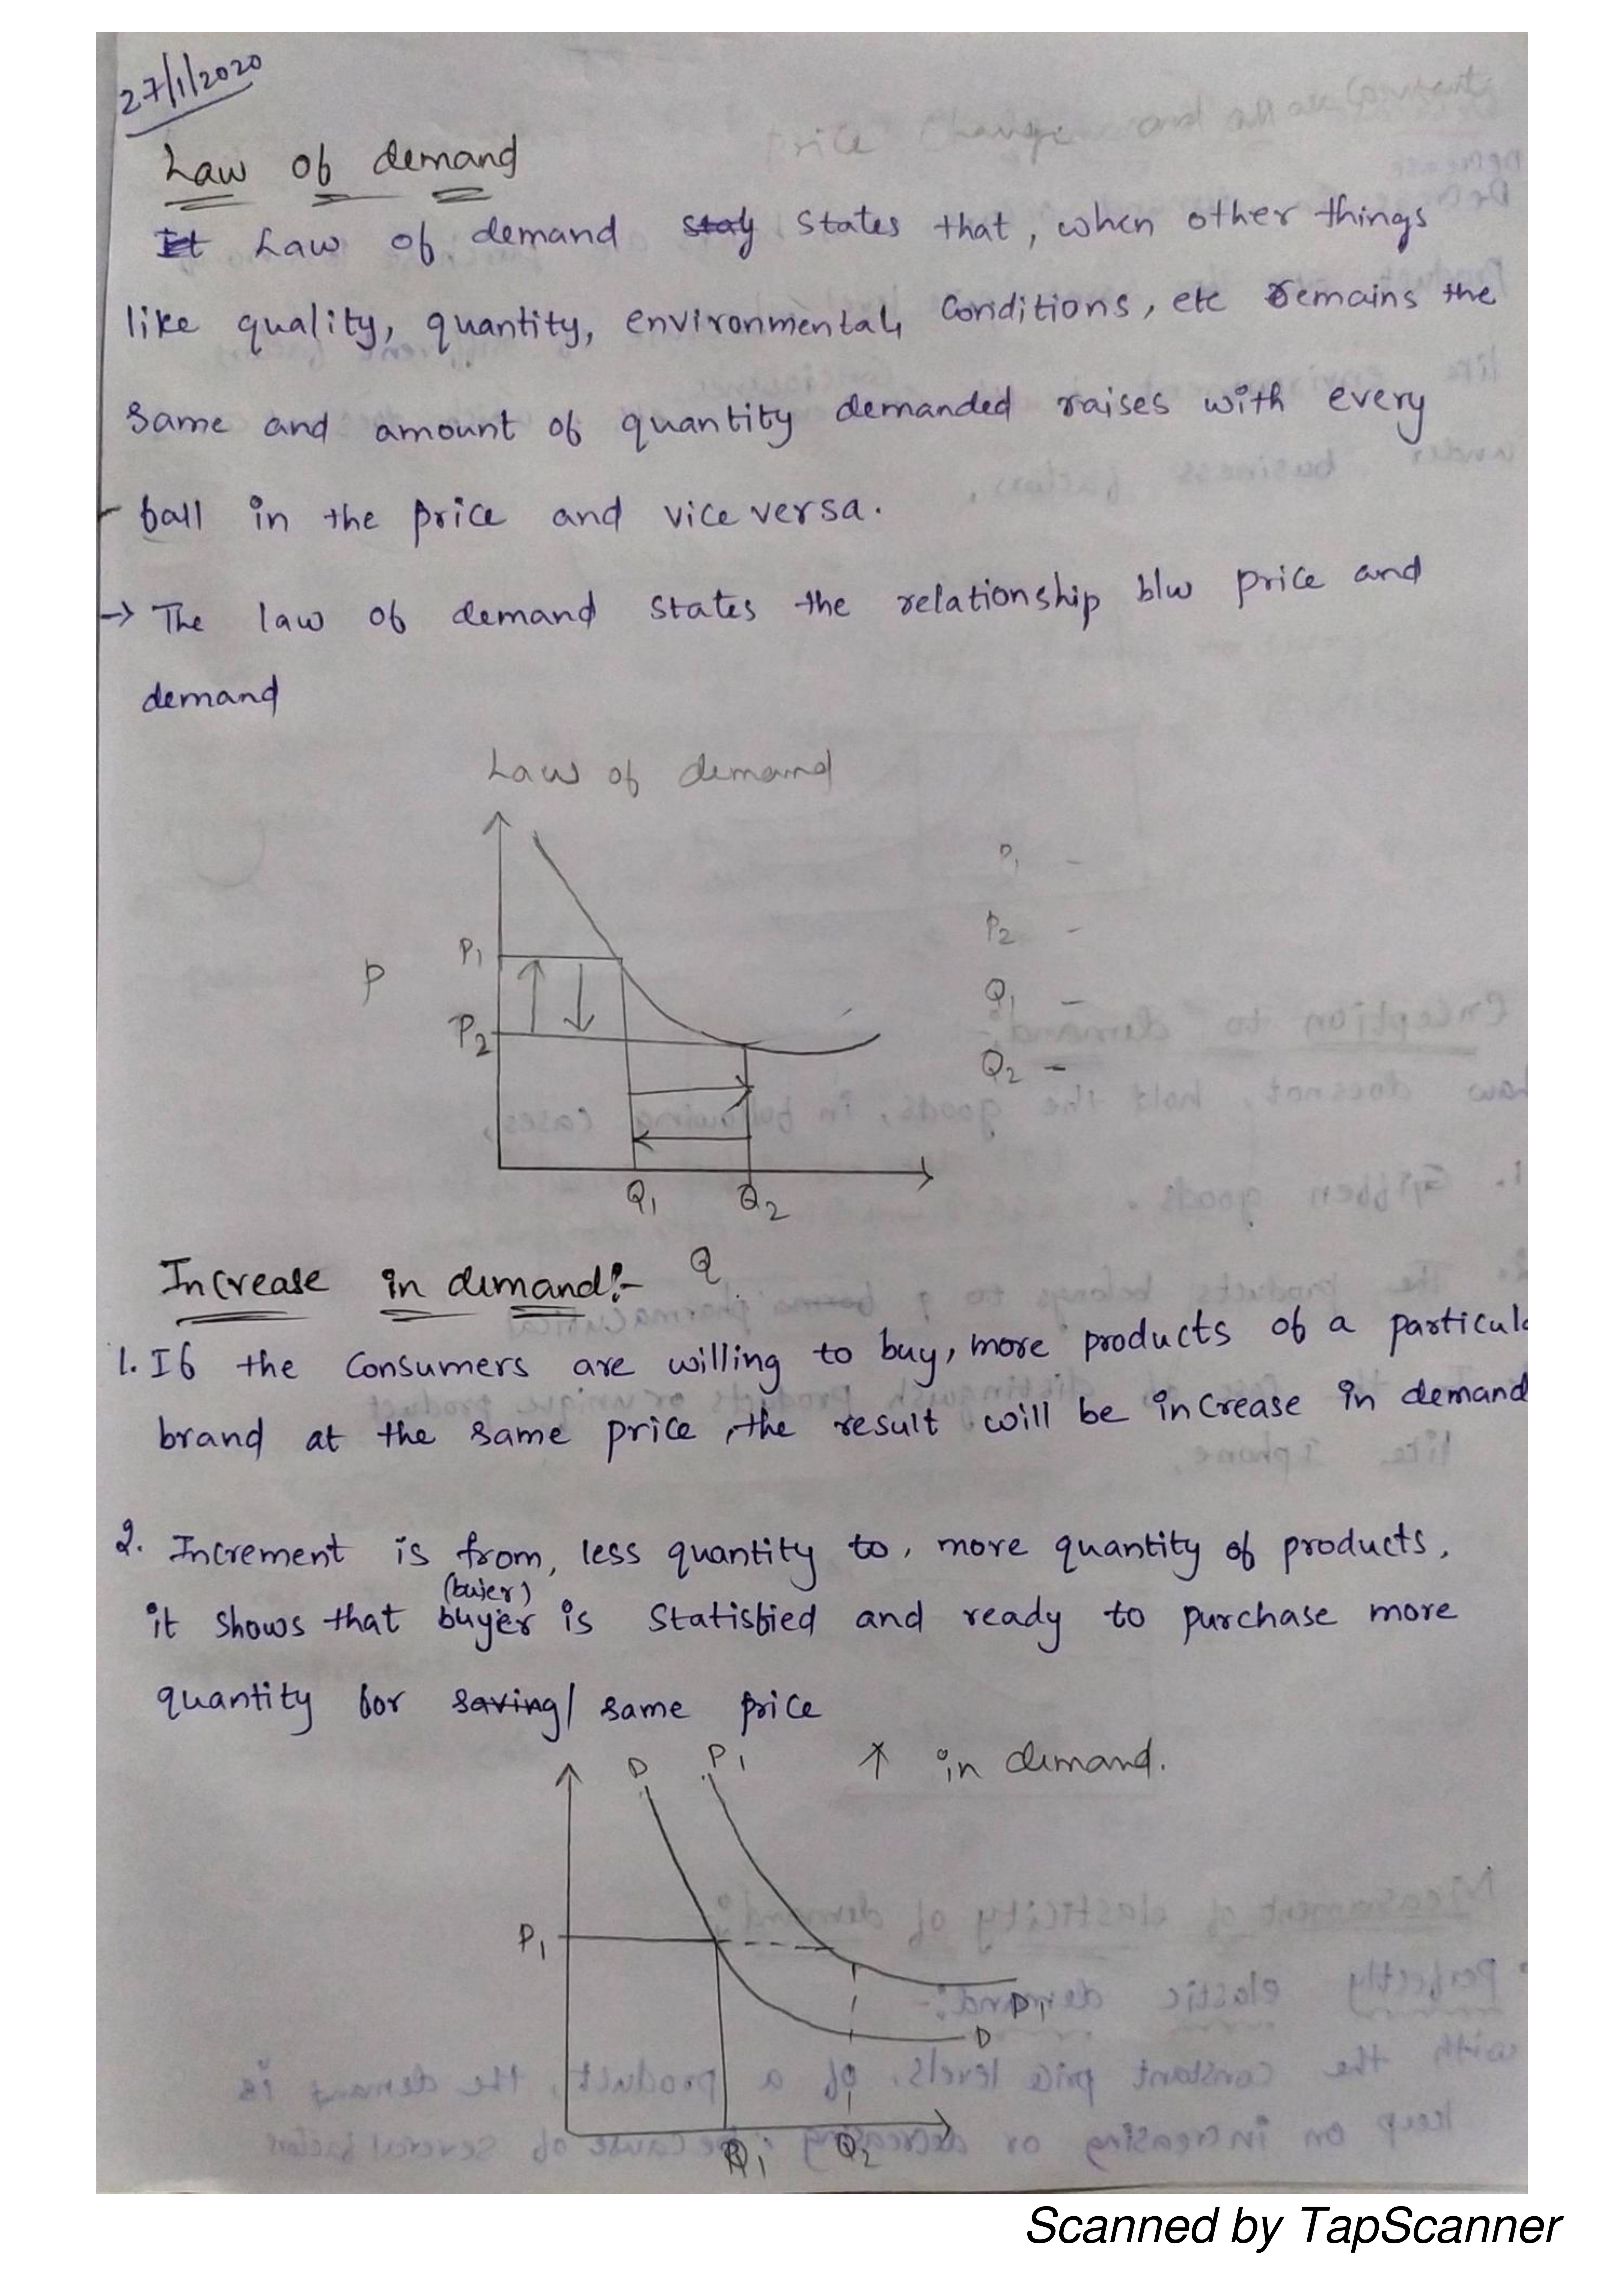 27/1/2020
Law of demand
It Law of demand stay states that, when other things
like quality, quantity, environmental, conditions, etc remains the
same and amount of quantity demanded raises with every
fall in the price and vice versa.
→ The law of demand states the relationship b/w price and
demand
Law of demand
P1 -
P2 -
Q1 -
Q2 -
P1
P
P2
Q1 Q2
Q
Increase in demand:-
1. If the consumers are willing to buy, more products of a particula
brand at the same price, the result will be increase in demand
2. Increment is from, less quantity to, more quantity of products,
(bujer)
it shows that buyer is statisfied and ready to purchase more
quantity for saving/ same price
D P1 ↑ in demand.
P1
D1
D
Q1 Q2
Scanned by TapScanner